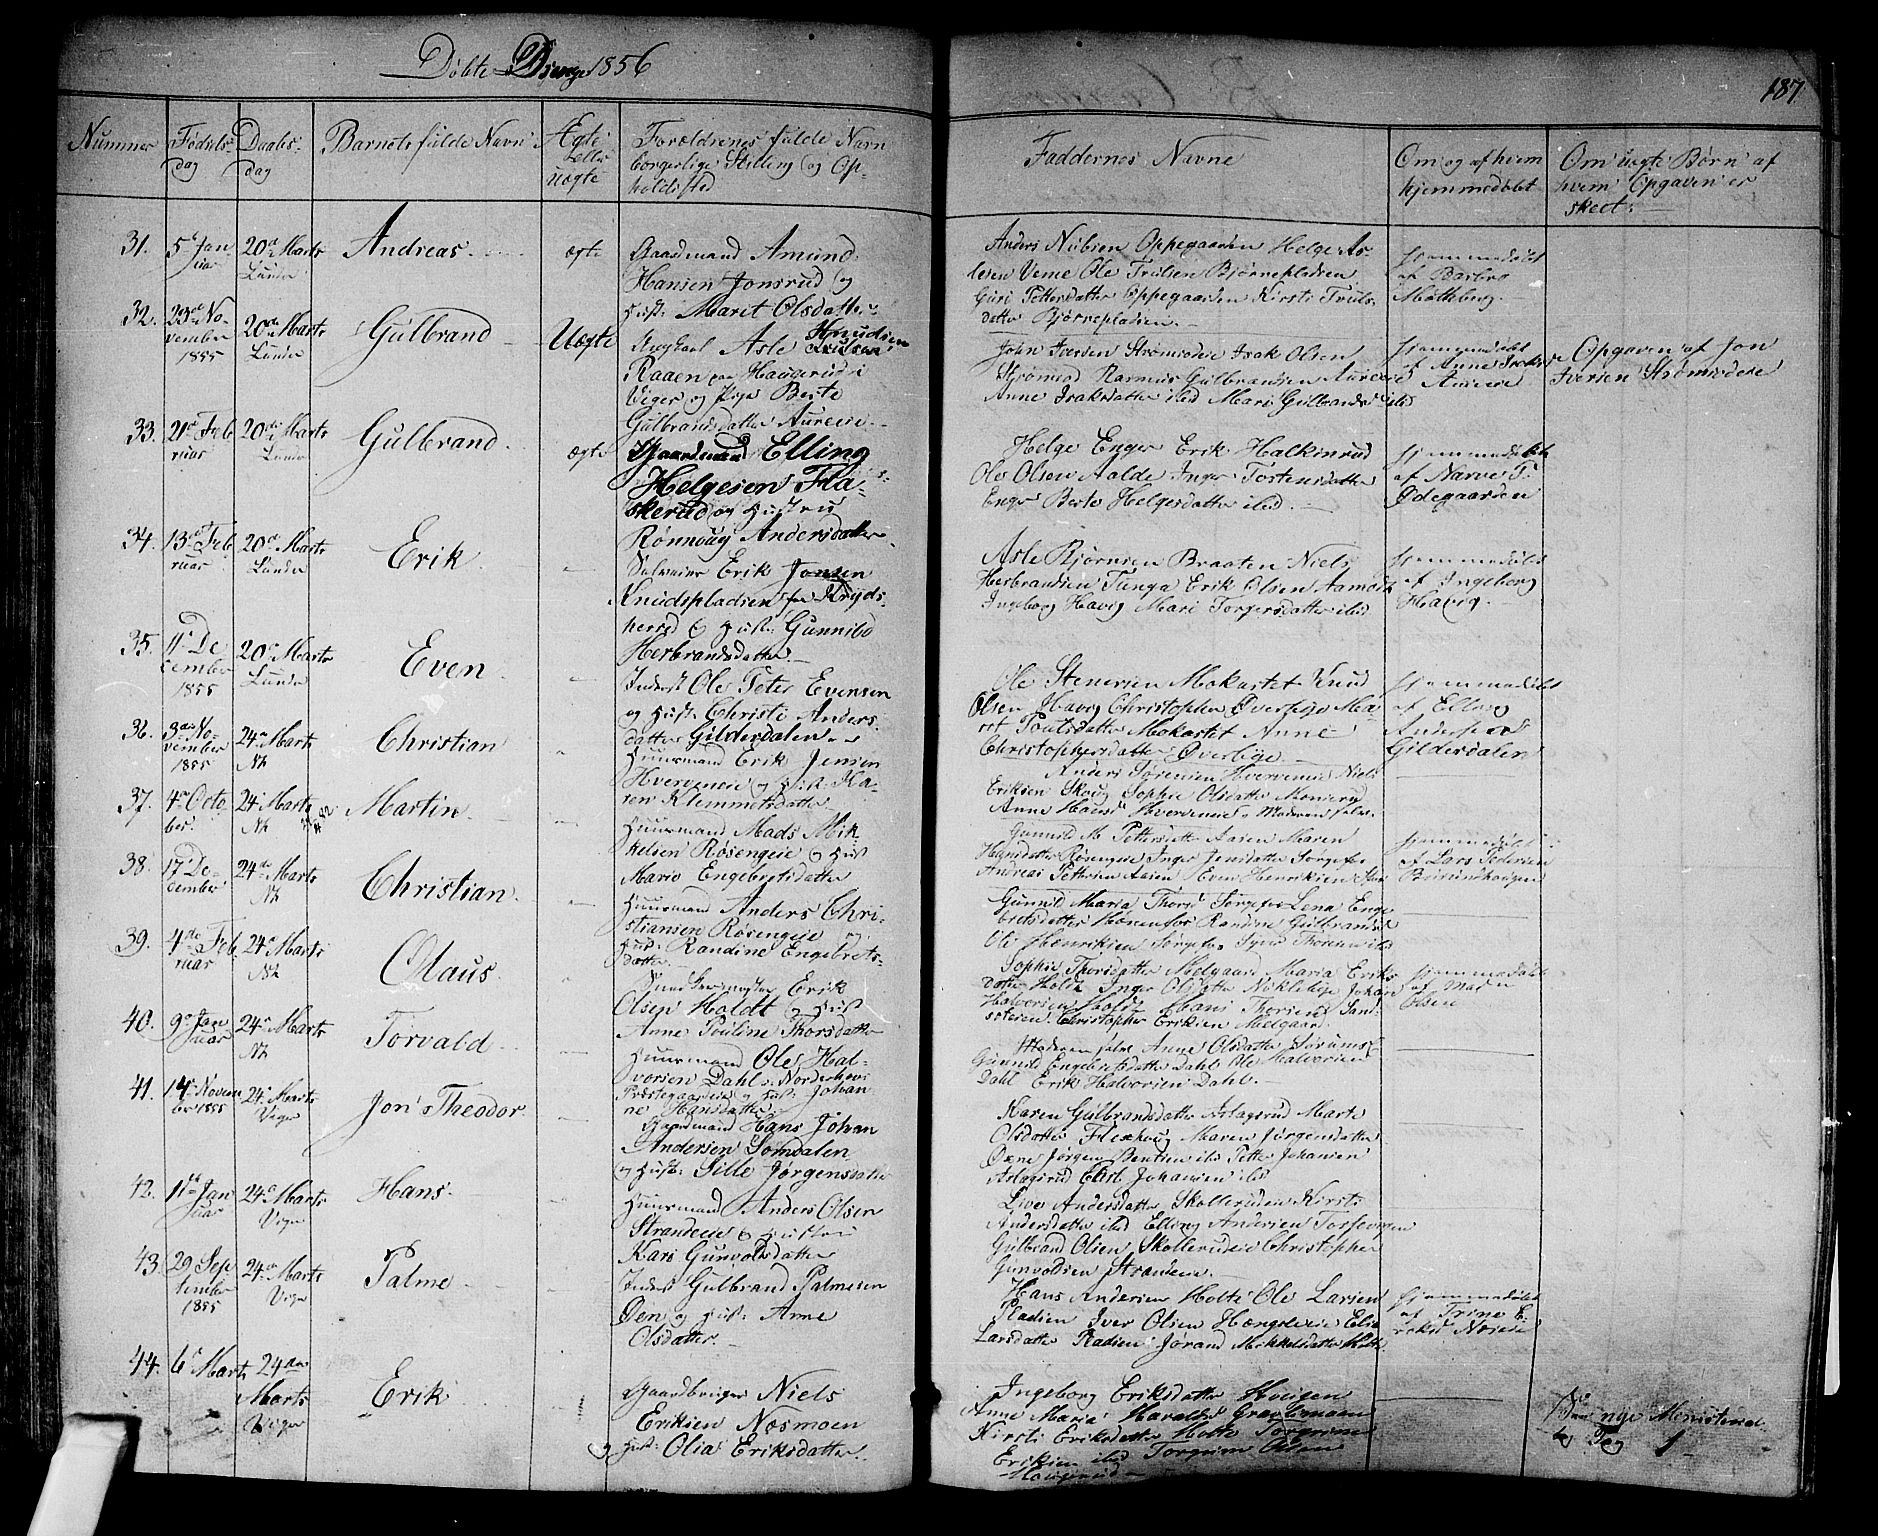 Döbte Drenge 1856
187
Nummer
Fødsels-
dag
Daabs-
dag
Barnets fulde Navn
Ægte
eller
uægte
Forældrenes fulde Navn
borgerlige Stilling og Op-
holdsted
Faddernes Navne
Om og af hvem
hjemmedøbt
Om uægte Børn af
hvem Opgaven er
skeet.
31. 5te Jan
uar
20de Marts
Lunder
Andreas
ægte
Gaardmand Amund
Hansen Jonsrud og
Hust: Marit Olsdatter
Anders Nielsen Oppegaarden Helge As-
lesen Veme Ole Trulsen Bjørnepladsen
Guri Pettersdatter Oppegaarden Kirsti Truls-
datter Bjørnepladsen.
Hjemmedøbt
af Barbro
32. 23de No-
vember
1855
20de Marts
Lunder
Gulbrand
Uægte
Ungkarl Asle Knudsen
Raaen paa Haugerud i
Viger og Pige Berte
Gulbrandsdatter Aureeie
John Iversen Strømsodeie Isak Olsen
Strømsod Rasmus Gulbrandsen Aureeie
Anne Isaksdatter ibd Mari Gulbrandsd ibid
Hjemmedøbt
af Anne Isaksd
Aureeie
Opgaven af Jon
Iversen Strømsodeie
33. 21de Feb
ruar
20de Marts
Lunder
Gulbrand
ægte
Gaardmand Elling
Helgesen Fla-
skerud og Hustru
Rønnoug Andersdatter
Helge Enger Erik Halkinrud
Ole Olsen Aalde Inger Tostensdatter
Enger Berte Helgesdatter ibid.
Hjemmedøbt
af Narve T.
Ødegaarden
34. 13de Feb
ruar
20de Marts
Lunder
Erik
Selveier Erik Jonsen
Knudspladsen fra Kryds-
herred og Hust: Gunnild
Herbrandsdatter
Asle Bjørnsen Braaten Niels
Herbrandsen Tunga Erik Olsen Aamodt
Ingeborg Havig Mari Torgersdatter ibid
Hjemmedøbt
af Ingeborg
Havig.
35. 11te De
cember
1855
20de Marts
Lunder
Even
Inderst Ole Peter Evensen
og Hust: Christi Anders
datter Gilderdalen
Ole Stenersen Mokastet Knud
Olsen Havig Christopher Øverlige Ma-
rit Poulsdatter Mokastet Anne
Christophersdatter Øverlige
Hjemmedøbt
af Elling
Andersen
Gilderdalen
36. 3die No-
vember
1855
24de Marts
Nh
Christian
Huusmand Erik Jensen
Hverveneie og Hust: Ka-
ren Klemmetsdatter
Anders Sørensen Hverveneie Niels
Eriksen Skoug Sophie Olsdatter
Anne Hansd Hverveneie Moderen selv.
37. 4de Octo
ber.
24de Marts
Nh
Martin
Huusmand Mads Mik
kelsen Røsengeie og Hust
Marie Engebretsdatter
Gunnild M. Pettersdatter Aasen Maren
Hansdatter Røsengeie Inger Jensdatter
Andreas Pettersen Aasen Even Henriksen
Hjemmedøbt
af Lars Pedersen
38. 17de De-
cember
24de Marts
Nh
Christian
Huusmand Anders Chri-
stiansen Røsengeie og
Hust: Randine Engebrets-
datter
Gunnild Maria Thorsd Lena Enge
bretsdatter Hønenfos Randine Gulbrandsd
Ole Henriksen Thoresen ibid
39. 4de Feb
ruar
24de Marts
Nh
Olaus
Erik
Olsen Holdt og Hust
Anne Pouline Thorsdatter
Sophie Thorsdatter Melgaard Maria Eriks
datter Holdt Inger Olsdatter Johan
Halvorsen Holdt Hans Thorsen Sand-
Christopher Eriksen Melgaard.
Hjemmedøbt
af Maren
Olsen
40. 9de Jan
uar
24de Marts
Nh
Torvald
Huusmand Ole Hal-
vorsen Dahl i Norderhovs
Præstegaardseie og Hust: Johan
ne Hansdatter
Moderen selv Anne Olsdatter
Gunnild Engebretsdatter Dahl Ole Halvorsen
Dahl Erik Halvorsen Dahl.
41. 14de Novem
ber 1855
24de Marts
Viger
Jon Theodor
Gaardmand Hans Johan
Andersen Somdalen
og Hust: Sille Jørgensdatter
Karen Gulbrandsdatter Aslagsrud Marte
Olsdatter Flexhoug Maren Jørgensdatter
Oxne Jørgen Bentsen ibd Petter Johansen
Aslagsrud Johansen ibid
42. 11te Jan
uar
24de Marts
Viger
Hans
Huusmand Anders Olsen
Strandeeie og Hustru
Kari Gunvoldsdatter
Live Andersdatter Skollerudeie Kirsti
Andersdatter ibd Elling Andersen
Gulbrand Olsen Skollerudeie Christopher
Gunvoldsen Strandeeie
43. 29 Sep
tember
1855
24de Marts
Viger
Palme
Inderst Gulbrand Palmesen
Den og Hust: Anne
Olsdatter.
Hans Andersen Holte Ole Larsen
Pladsen Iver Olsen Hængsleeie
Larsdatter Pladsen Jørand Mikkelsdatter Holte
Hjemmedøbt
af Trine E.
44. 6te Marts
24de
Marts
Viger
Erik
Gaardbruger Niels
Eriksen Næsmoen
og Hust: Olia Eriksdatter.
Ingeborg Eriksdatter Hougen
Anne Maria Haraldsd Gravlimoen
Kirsti Eriksdatter Holte Torgrim
Eriksen ibid Torgrim Olsen
Hougerud